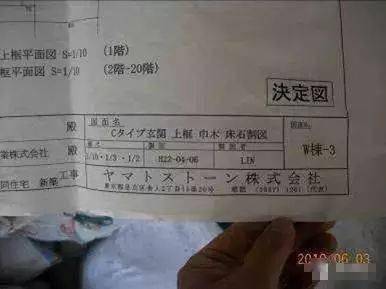 上框平面図 S=1/10 (1階)
框平面図 S=1/10 (2階-20階)
決定図
殿
図面名
Cタイプ玄関 上框 巾木 床石割図
図面No
W棟-3
業株式会社 殿
1/10・1/3・1/2
H22-04-06
LIN
同住宅 新築 工事
ヤマトストーン株式会社
2010.06.03